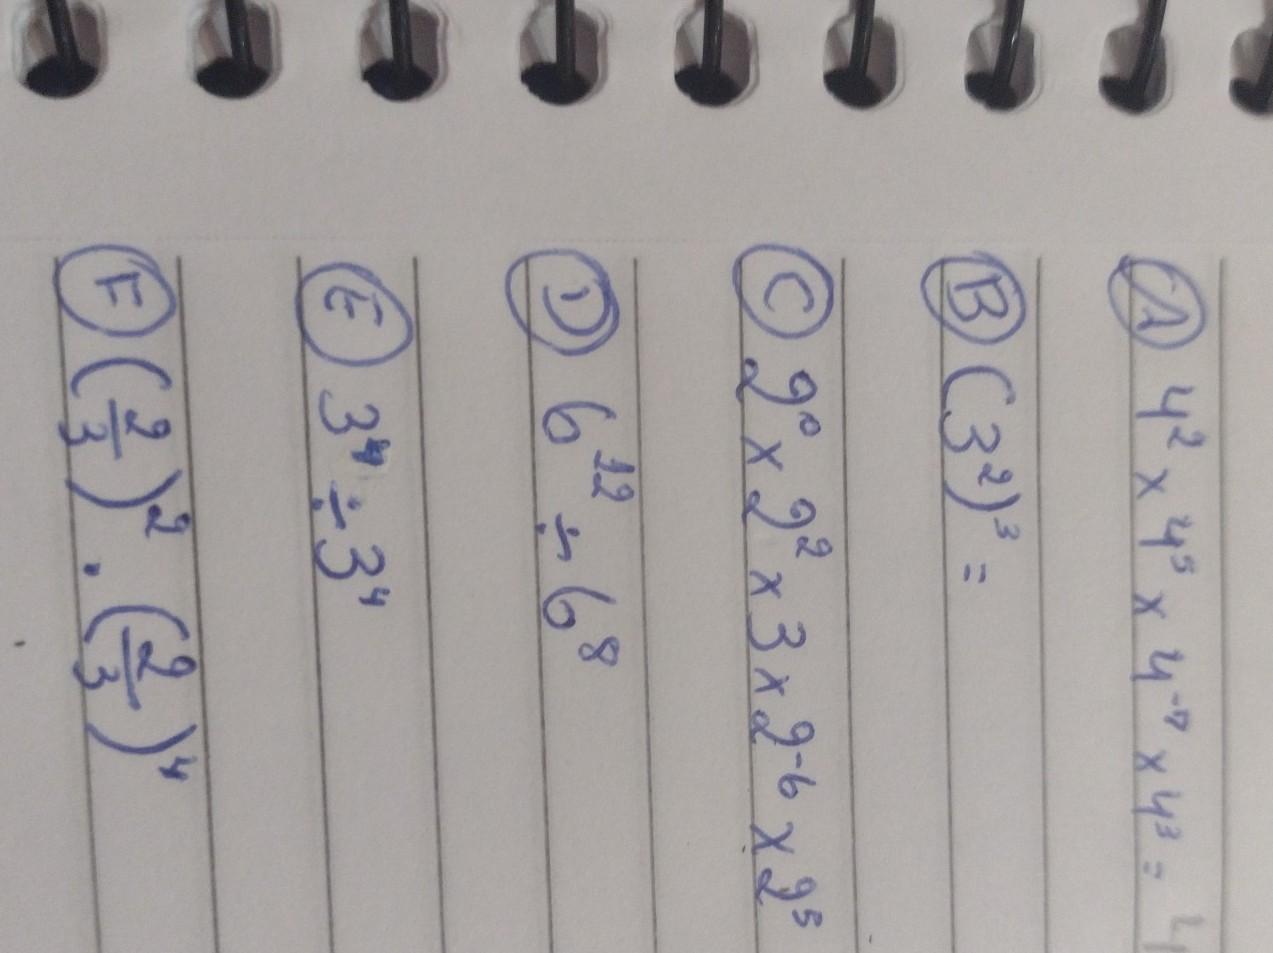 A 4² x 4⁵ x 4⁻⁷ x 4³ = 4
B (3²)³ =
C 2⁰ x 2² x 3 x 2⁻⁶ x 2⁵
D 6¹² ÷ 6⁸
E 3⁴ ÷ 3⁴
F (2/3)² . (2/3)⁴